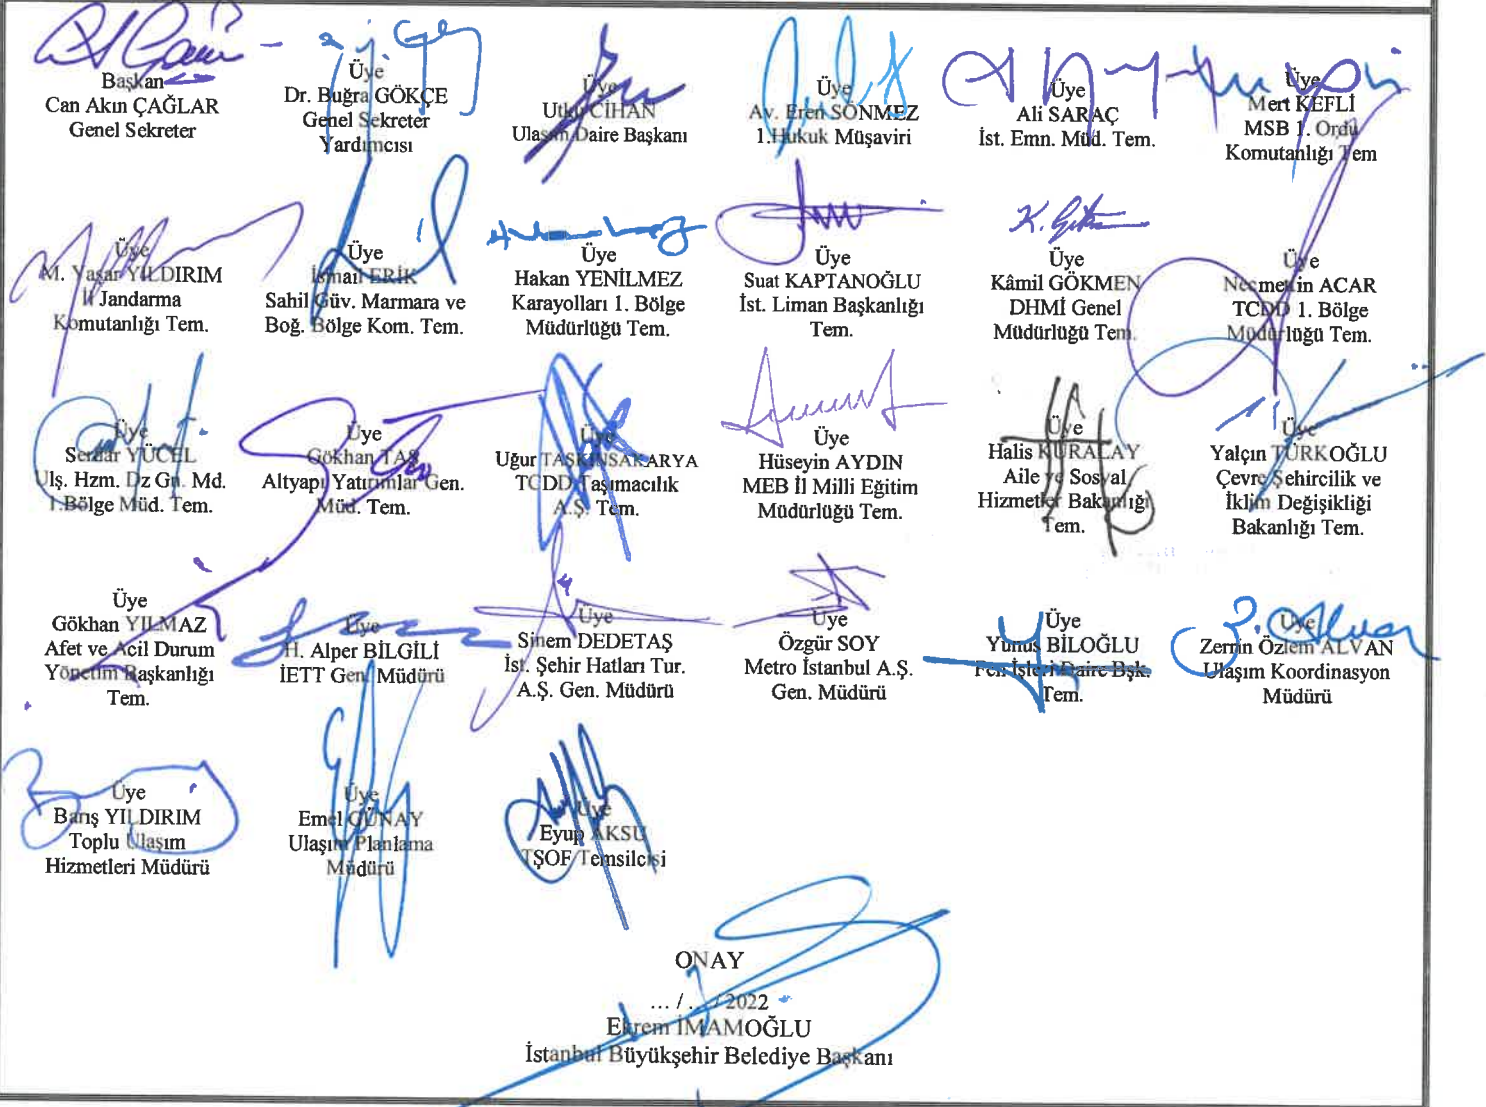 Başkan
Can Akın ÇAĞLAR
Genel Sekreter
Üye
Dr. Buğra GÖKÇE
Genel Sekreter
Yardımcısı
Üye
Utku CİHAN
Ulaşım Daire Başkanı
Üye
Av. Eren SÖNMEZ
1.Hukuk Müşaviri
Üye
Ali SARAÇ
İst. Emn. Müd. Tem.
Üye
Mert KEFLİ
MSB 1. Ordu
Komutanlığı Tem
Üye
M. Yaşar YILDIRIM
İl Jandarma
Komutanlığı Tem.
Üye
İsmail ERİK
Sahil Güv. Marmara ve
Boğ. Bölge Kom. Tem.
Üye
Hakan YENİLMEZ
Karayolları 1. Bölge
Müdürlüğü Tem.
Üye
Suat KAPTANOĞLU
İst. Liman Başkanlığı
Tem.
Üye
Kâmil GÖKMEN
DHMİ Genel
Müdürlüğü Tem.
Üye
Necmettin ACAR
TCDD 1. Bölge
Müdürlüğü Tem.
Üye
Serdar YÜCEL
Ulş. Hzm. Dz Gn. Md.
1.Bölge Müd. Tem.
Üye
Gökhan TAŞ
Altyapı Yatırımlar Gen.
Müd. Tem.
Üye
Uğur TAŞKINSAKARYA
TCDD Taşımacılık
A.Ş. Tem.
Üye
Hüseyin AYDIN
MEB İl Milli Eğitim
Müdürlüğü Tem.
Üye
Halis KURALAY
Aile ve Sosyal
Hizmetler Bakanlığı
Tem.
Üye
Yalçın TÜRKOĞLU
Çevre Şehircilik ve
İklim Değişikliği
Bakanlığı Tem.
Üye
Gökhan YILMAZ
Afet ve Acil Durum
Yönetim Başkanlığı
Tem.
Üye
H. Alper BİLGİLİ
İETT Gen. Müdürü
Üye
Sinem DEDETAŞ
İst. Şehir Hatları Tur.
A.Ş. Gen. Müdürü
Üye
Özgür SOY
Metro İstanbul A.Ş.
Gen. Müdürü
Üye
Yunus BİLOĞLU
Fen İşleri Daire Bşk.
Tem.
Üye
Zerrin Özlem ALVAN
Ulaşım Koordinasyon
Müdürü
Üye
Barış YILDIRIM
Toplu Ulaşım
Hizmetleri Müdürü
Üye
Emel GÜNAY
Ulaşım Planlama
Müdürü
Üye
Eyup AKSU
TŞOF Temsilcisi
ONAY
... / ... / 2022
Ekrem İMAMOĞLU
İstanbul Büyükşehir Belediye Başkanı